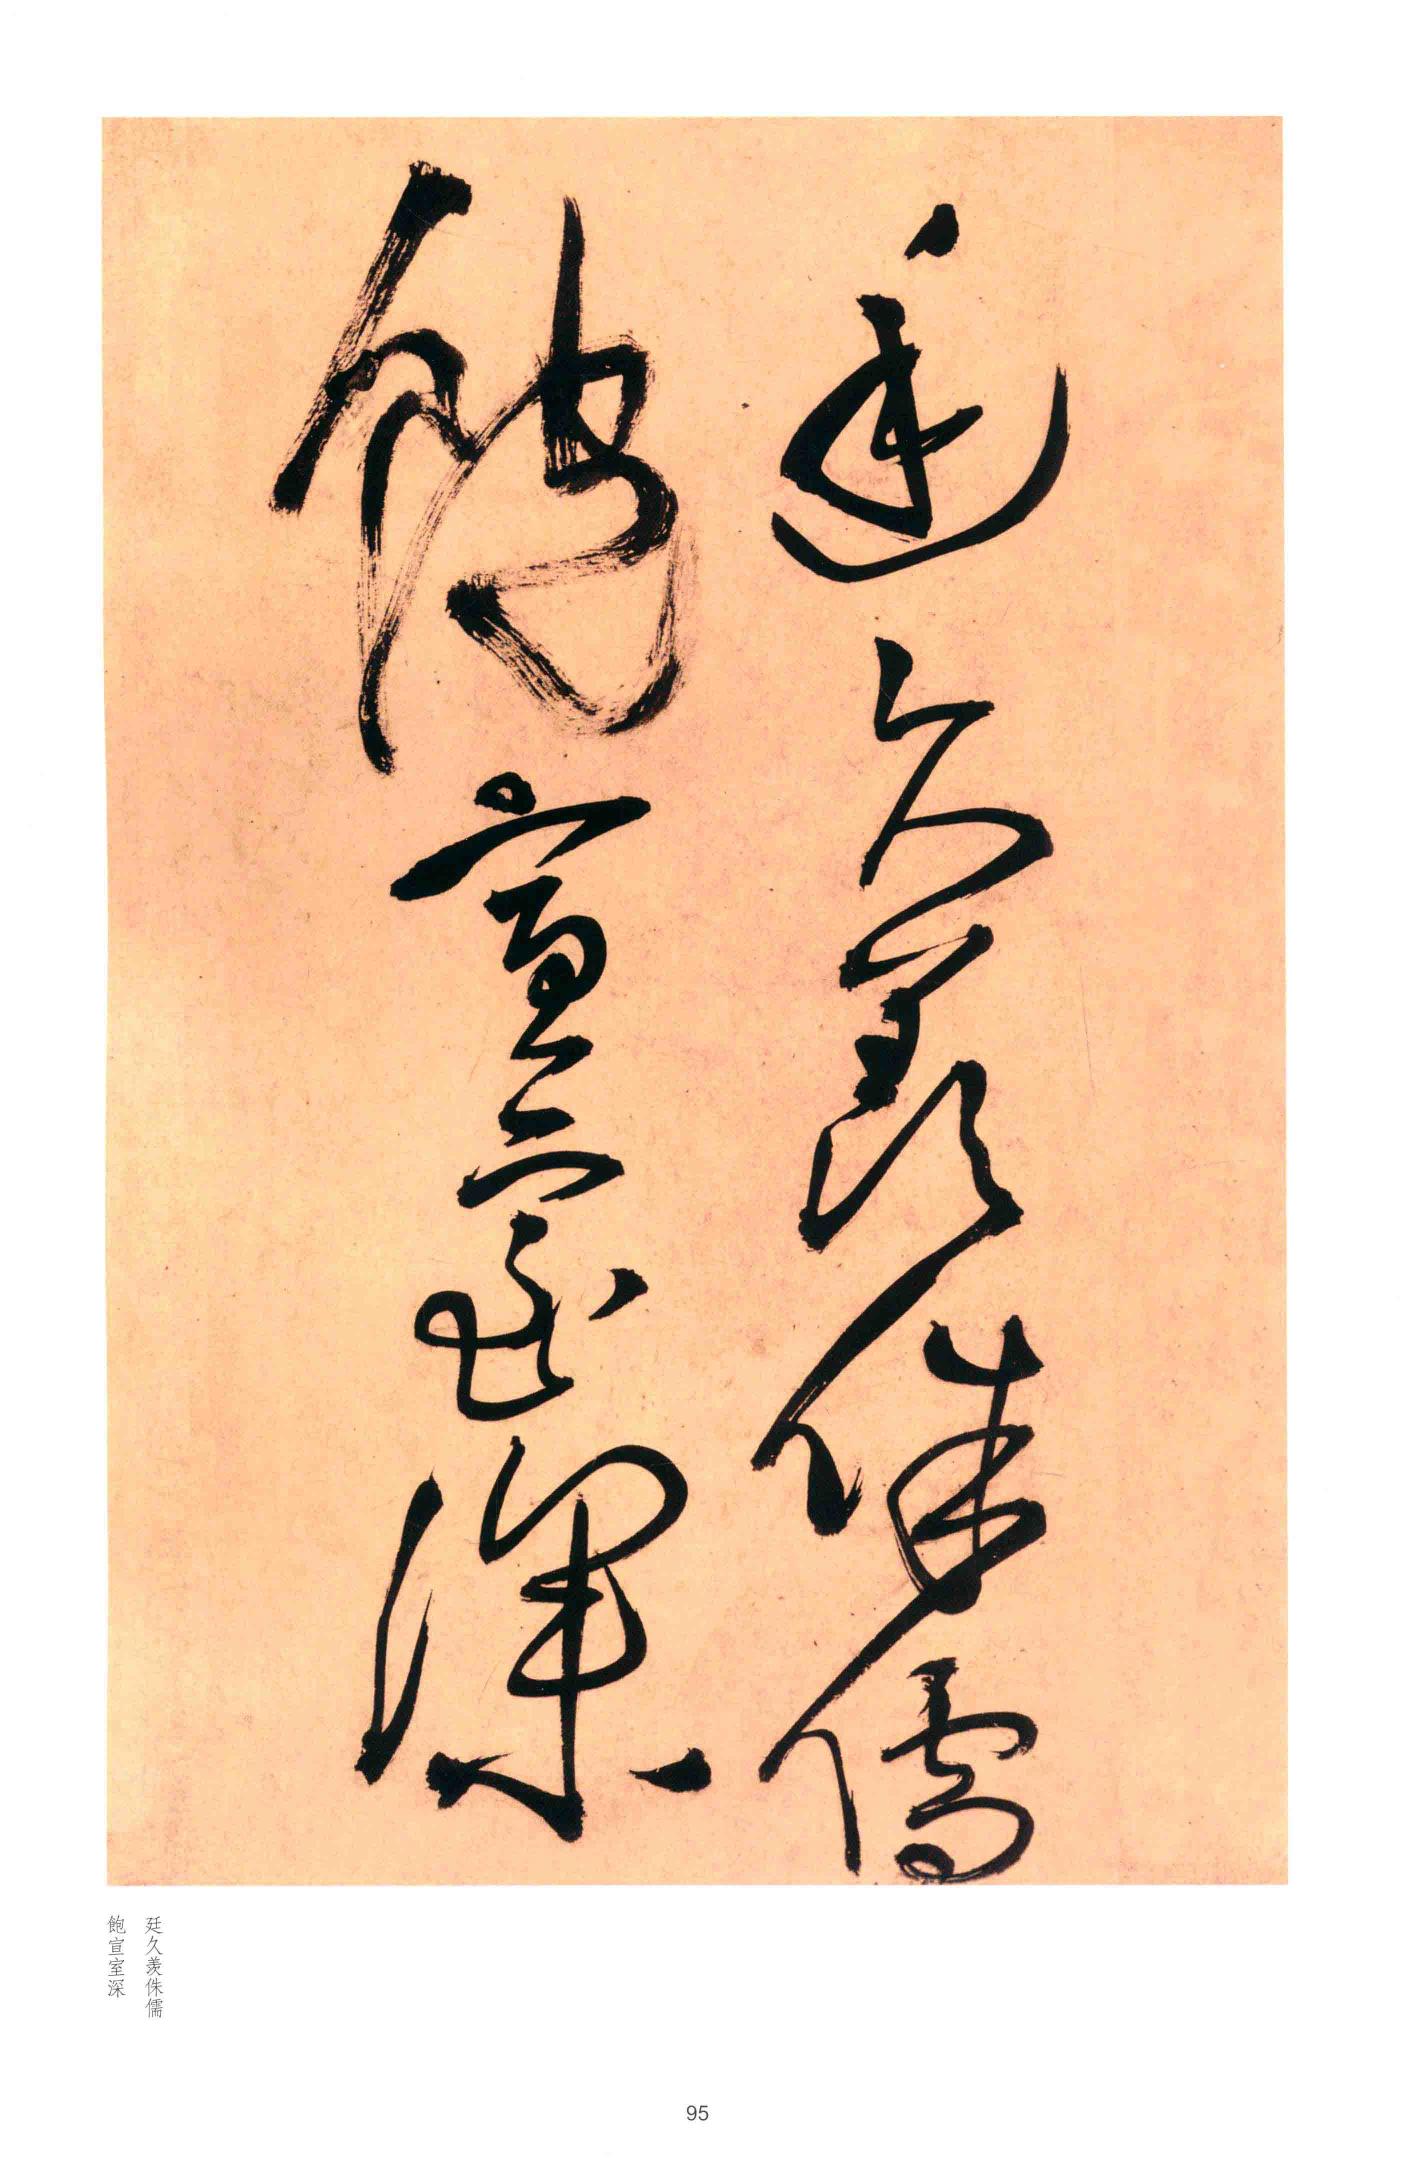 廷久羨侏儒
飽宣室深
廷久羨侏儒
飽宣室深
95